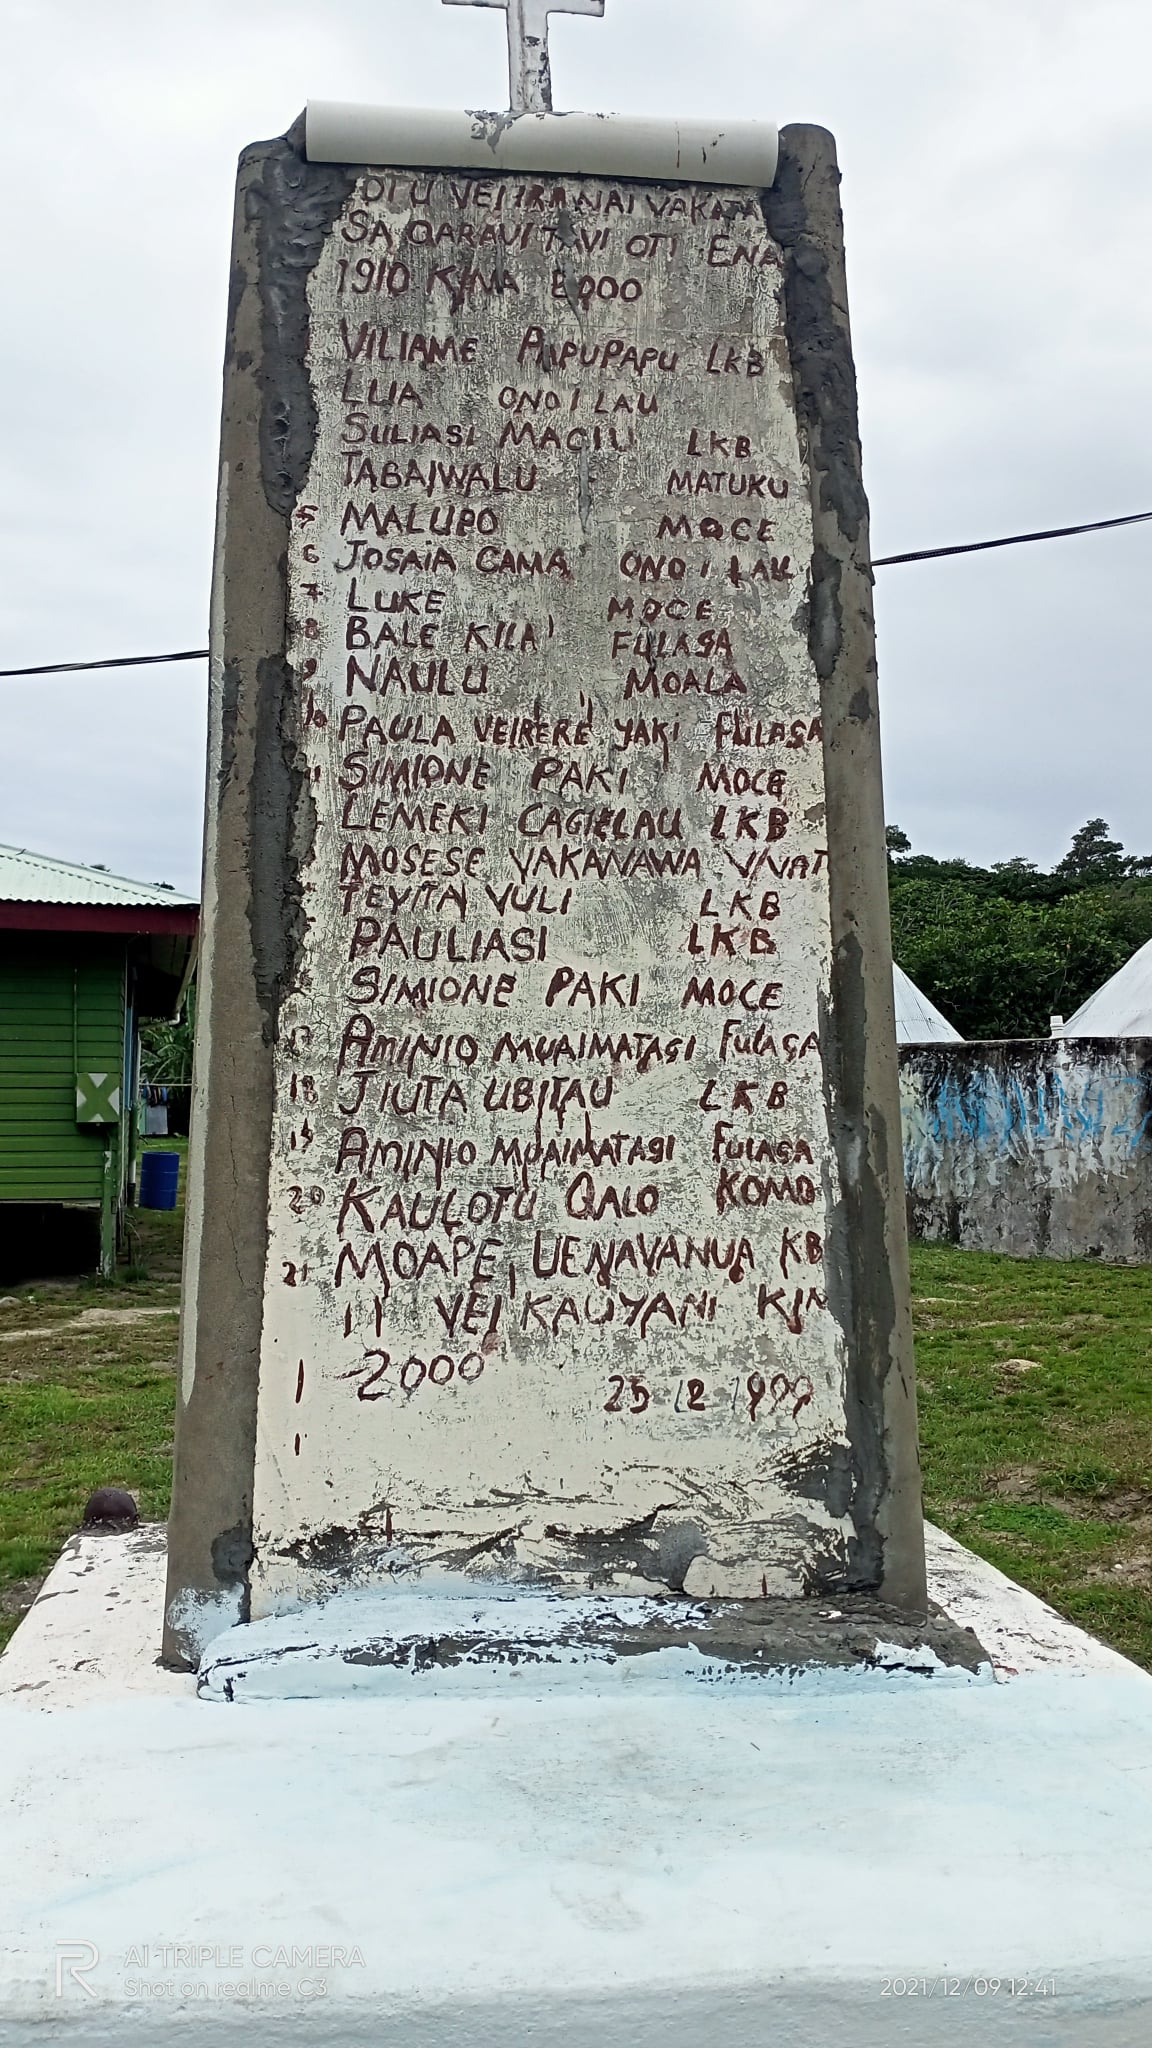 OTU VEIIRA NAI VAKATA
SA QARAVI TAVI OTI ENA
1910 KINA 2000
VILIAME LKB
LUA ONO I LAU
SULIASI MACIU LKB
TABAIWALU MATUKU
5 MALUPO MOCE
6 JOSAIA CAMA ONO I LAU
7 LUKE MOCE
8 BALE KILA FULAGA
9 NAULU MOALA
10 PAULA VEIRERE YAKI FULAGA
11 SIMIONE PAKI MOCE
LEMEKI CAGIELAU LKB
MOSESE VAKANAWA
TEVITA VULI LKB
PAULIASI LKB
SIMIONE PAKI MOCE
17 AMINIO MUAIMATAGI FULAGA
18 JIUTA UBITAU LKB
19 AMINIO MUAIMATAGI FULAGA
20 KAULOTU QALO KOMO
21 MOAPE UENAVANUA KB
11 VEI KAUYANI KIN
1 2000 25 12 1999
1
R AI TRIPLE CAMERA
Shot on realme C3 2021/12/09 12:41